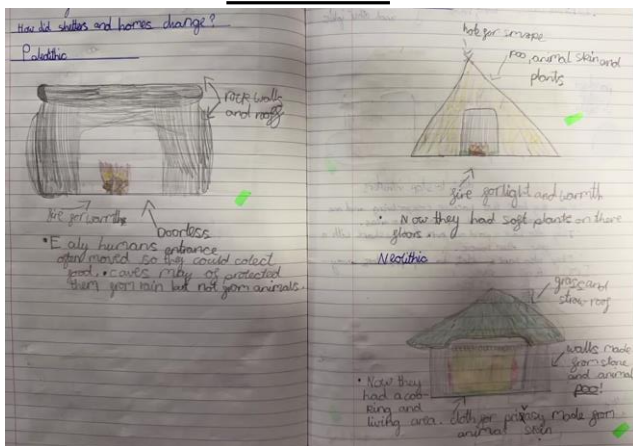 How did shelters and homes change?
Paleolithic
rock walls
and roofs
fire for warmth
Doorless
entrance
• Ealy humans
often moved so they could colect
food. • caves may of protected
them from rain but not from animals.
hole for
poo, animal skin and
plants
fire for light and warmth
• Now they had soft plants on there
floors.
Neolithic
grass and
straw roof
walls made
from stone
and animal
poo!
• Now they
had a coo-
king and
living area.
cloth for privasy made from
animal skin